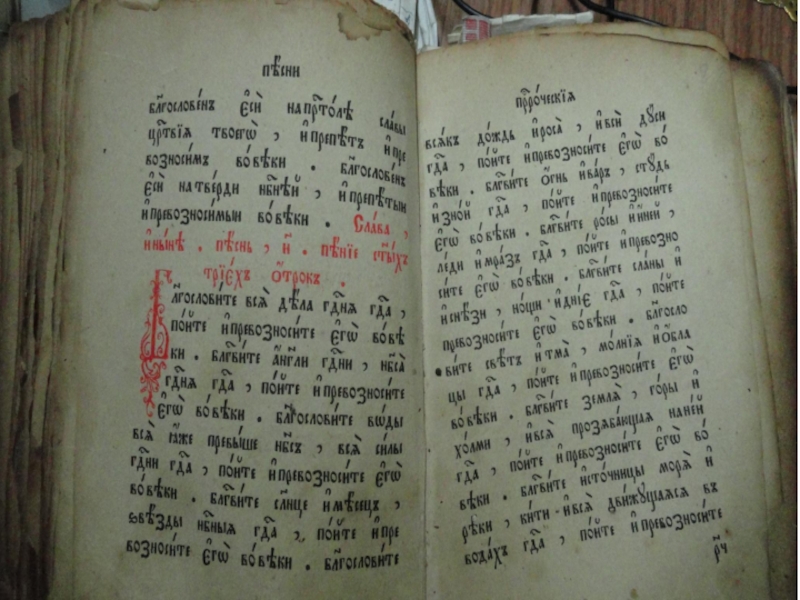 пѣ́сни
бл҃гослове́нъ є҆сѝ напрⷭ҇то́лѣ сла́вы
црⷭ҇твїѧ твоегѡ̀ , и҆препѣ́тъ и҆пре
возноси́мъ во́вѣки . бл҃гослове́нъ
є҆сѝ натве́рди нбⷭ҇нѣй , и҆препѣ́тыи
и҆превозноси́мыи во́вѣки . Сла́ва ,
и҆ны́нѣ . пѣ́снь , и҃ . пѣ́нїе ст҃ы́хъ
трїе́хъ ѻ҆́трокъ .
Бл҃гослови́те всѧ̀ дѣ́ла гдⷭ҇нѧ гдⷭ҇а ,
по́йте и҆превозноси́те є҆гѡ̀ во́вѣ
ки . бл҃гви́те а҆́нгли гдⷭ҇ни , нб҃са̀
гдⷭ҇нѧ гдⷭ҇а , по́йте и҆превозноси́те
є҆гѡ̀ во́вѣки . бл҃гослови́те во́ды
всѧ̀ ꙗ҆́же превы́ше нб҃съ , всѧ̀ си́лы
гдⷭ҇ни гдⷭ҇а , по́йте и҆превозноси́те є҆гѡ̀
во́вѣки . бл҃гви́те сл҃нце и҆мѣ́сѧцъ ,
ѕвѣ́зды нбⷭ҇ныѧ гдⷭ҇а , по́йте и҆пре
возноси́те є҆гѡ̀ во́вѣки . бл҃гослови́те
прⷪ҇ро́ческїѧ
всѧ́къ до́ждь и҆роса̀ , и҆всѝ дꙋ́си
гдⷭ҇а , по́йте и҆превозноси́те є҆гѡ̀ во́
вѣки . бл҃гви́те ѻ҆́гнь и҆ва́ръ , стꙋ́дь
и҆зно́й гдⷭ҇а , по́йте и҆превозноси́те
є҆гѡ̀ во́вѣки . бл҃гви́те ро́сы и҆и́ней ,
ле́ди и҆мра́зъ гдⷭ҇а , по́йте и҆превозно
си́те є҆гѡ̀ во́вѣки . бл҃гви́те сла́ны и҆
и҆снѣ́зи , но́щи и҆дні́е гдⷭ҇а , по́йте
превозноси́те є҆гѡ̀ во́вѣки . бл҃госло
ви́те свѣ́тъ и҆тма̀ , мо́лнїѧ и҆ѻ҆́бла
цы гдⷭ҇а , по́йте и҆превозноси́те є҆гѡ̀
во́вѣки . бл҃гви́те землѧ̀ , го́ры и҆
хо́лми , и҆всѧ̀ прозѧба́ющаѧ нане́й
гдⷭ҇а , по́йте и҆превозноси́те є҆гѡ̀ во́
вѣки . бл҃гви́те и҆сто́чницы морѧ̀ и҆
рѣ́ки , ки́ти и҆всѧ̀ дви́жꙋщаѧсѧ въ
вода́хъ гдⷭ҇а , по́йте и҆превозноси́те
рч҃